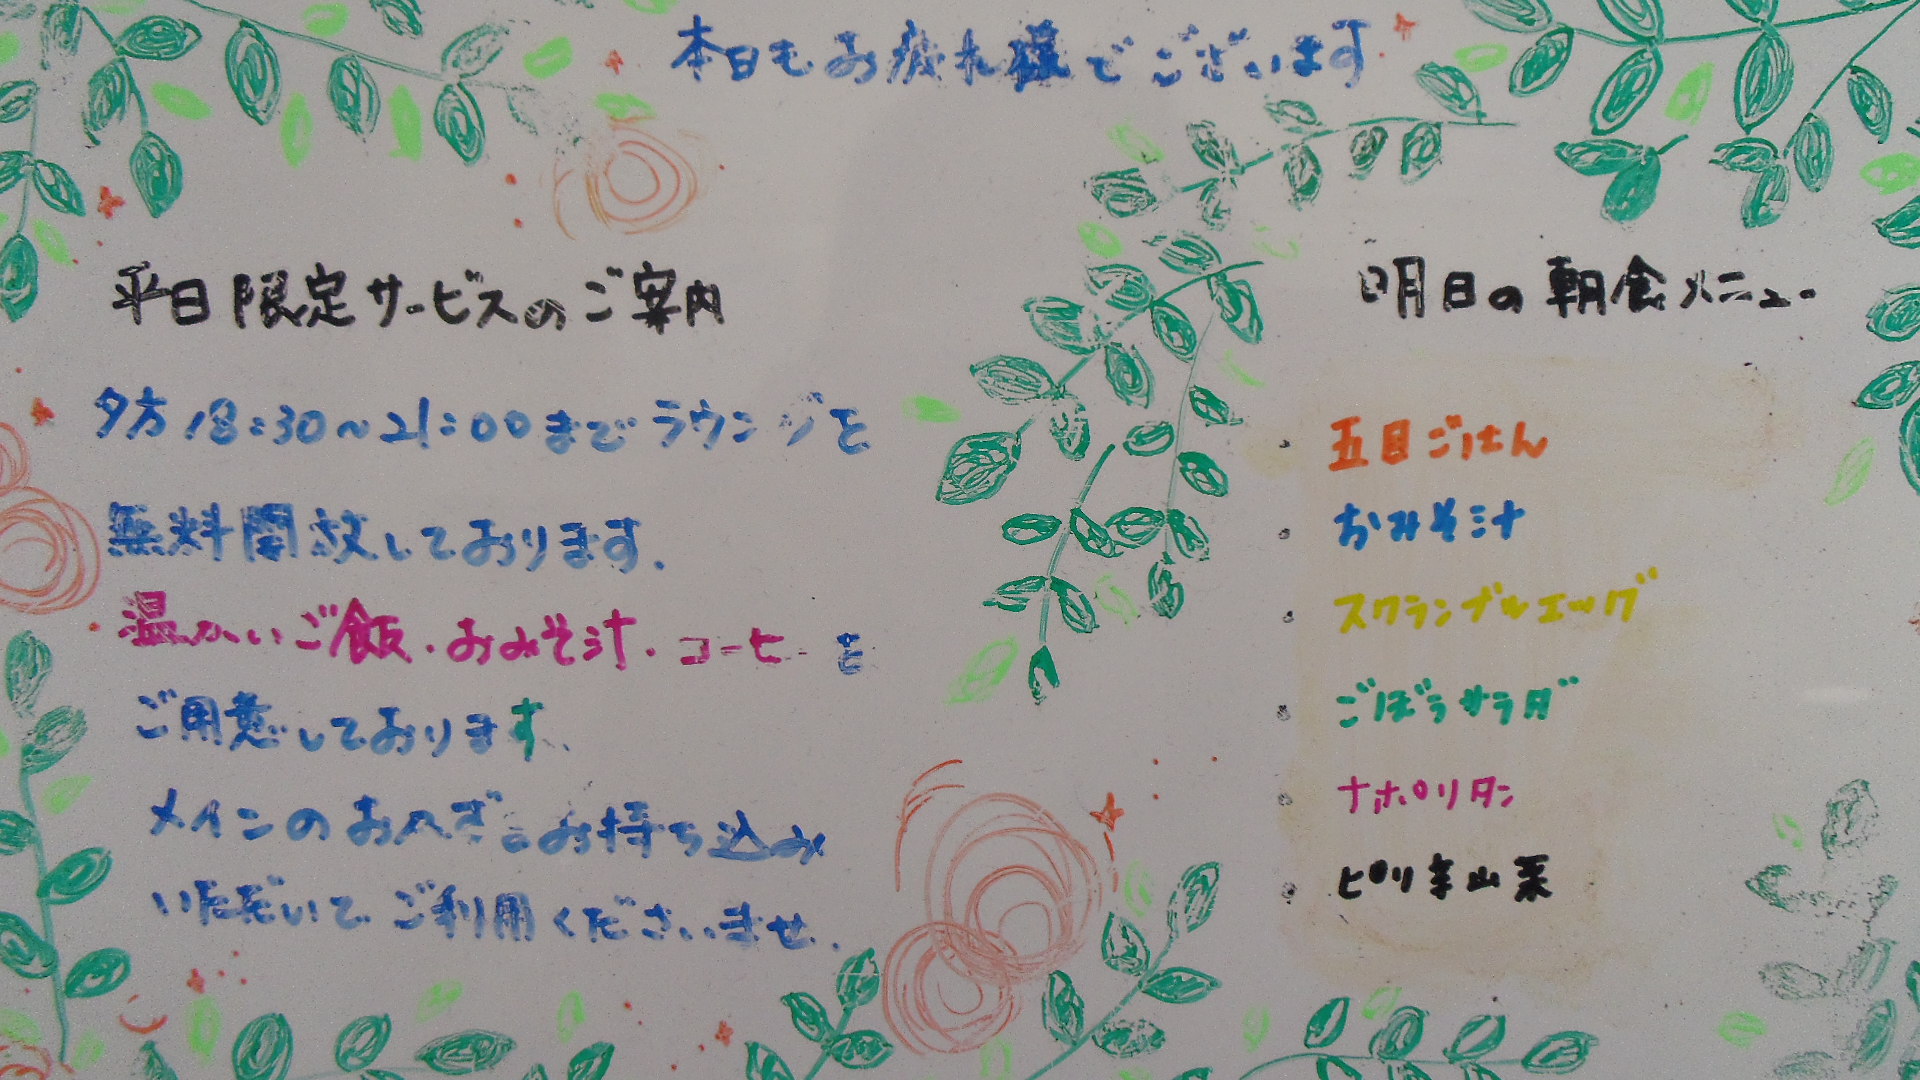 本日もお疲れ様でございます
平日限定サービスのご案内
夕方18:30~21:00までラウンジを
無料開放しております.
温かいご飯・おみそ汁・コーヒーを
ご用意しております、
メインのおかずはお持ち込み
いただいてご利用くださいませ.
明日の朝食メニュー
・五目ごはん
・おみそ汁
・スクランブルエッグ
・ごぼうサラダ
・ナポリタン
・ピリ辛山菜